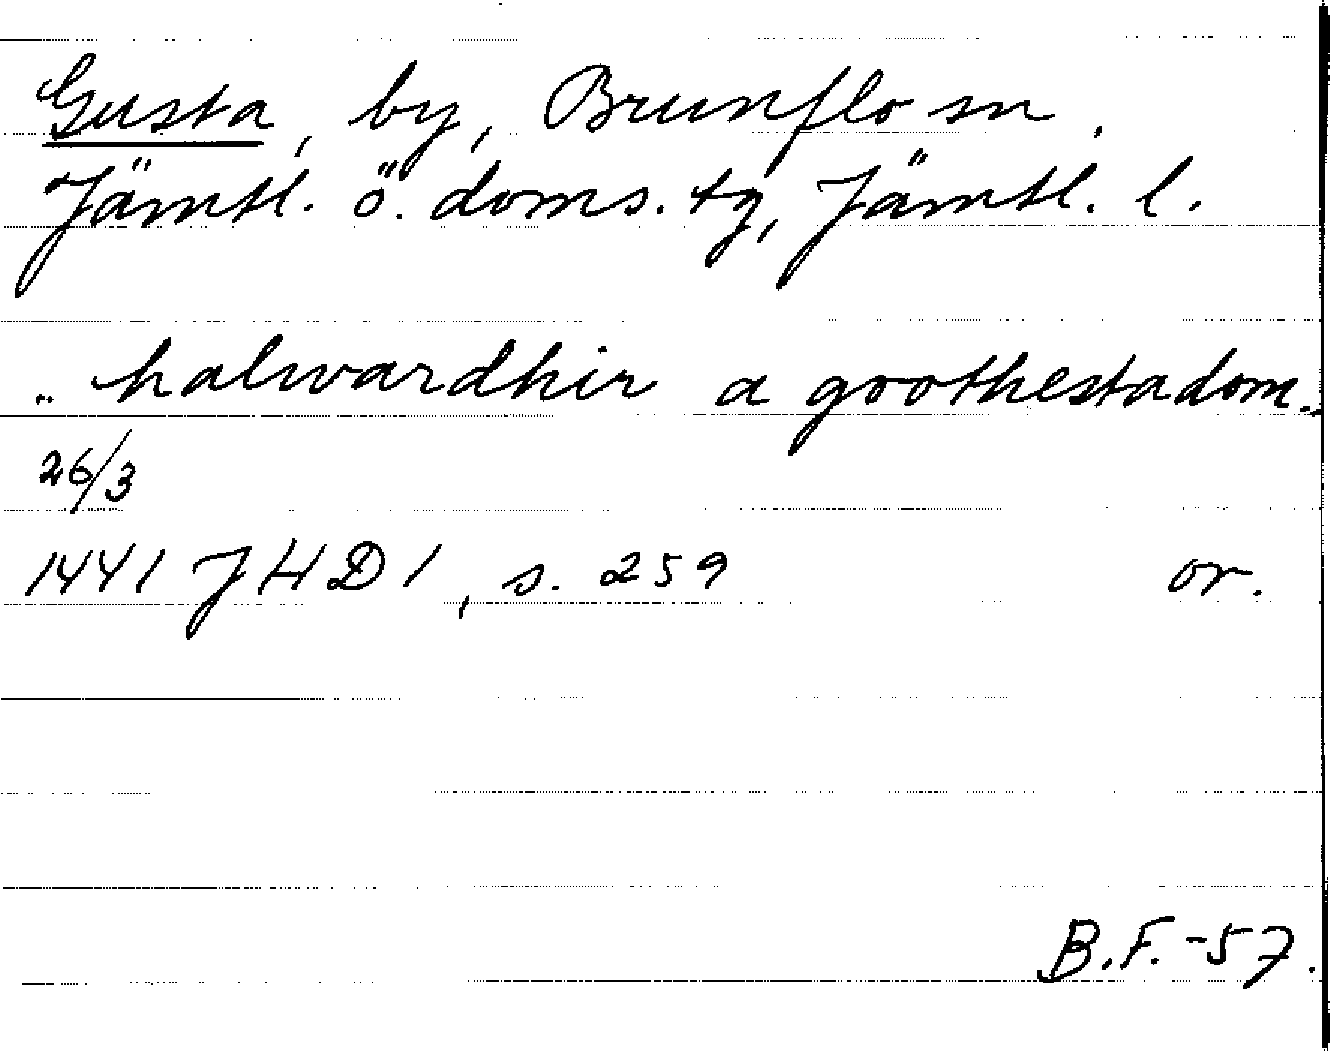 Gusta, by, Brunflo sn.
Jämtl. ö. doms. tg, Jämtl. l.
.. halwardhir a goothestadom..
26/3
1441 JHD 1, s. 259 or.
B.F. -57.